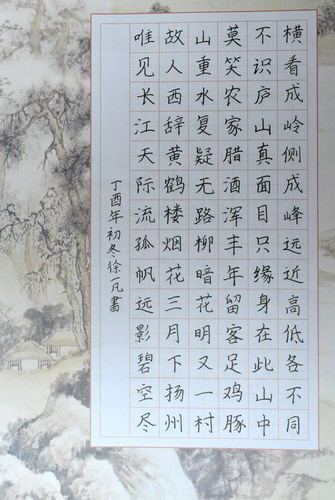 横看成岭侧成峰远近高低各不同
不识庐山真面目只缘身在此山中
莫笑农家腊酒浑丰年留客足鸡豚
山重水复疑无路柳暗花明又一村
故人西辞黄鹤楼烟花三月下扬州
唯见长江天际流孤帆远影碧空尽
丁酉年初冬徐一凡書